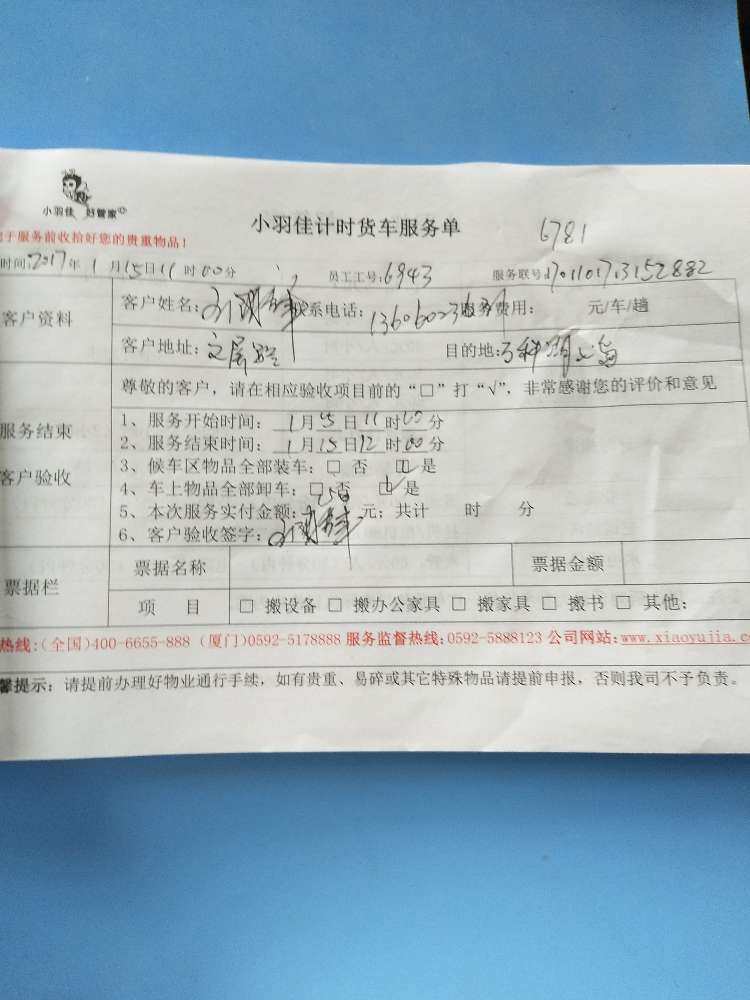 小羽佳 好管家
小羽佳计时货车服务单
6781
于服务前收拾好您的贵重物品!
时间:2017年1月15日11时00分 员工工号:6943 服务联号:
客户资料
客户姓名: 联系电话: 服务费用: 元/车/趟
客户地址:文屏路 目的地:万科湖心岛
服务结束
客户验收
尊敬的客户，请在相应验收项目前的“□”打“√”，非常感谢您的评价和意见
1、服务开始时间:1月15日11时00分
2、服务结束时间:1月15日12时00分
3、候车区物品全部装车:□ 否 □ 是
4、车上物品全部卸车:□ 否 □ 是
5、本次服务实付金额:150元; 共计 时 分
6、客户验收签字:
票据栏
票据名称 票据金额
项 目 □ 搬设备 □ 搬办公家具 □ 搬家具 □ 搬书 □ 其他:
热线:(全国)400-6655-888 (厦门)0592-5178888 服务监督热线:0592-5888123 公司网站:www.xiaoyujia.c
馨提示: 请提前办理好物业通行手续，如有贵重、易碎或其它特殊物品请提前申报，否则我司不予负责。